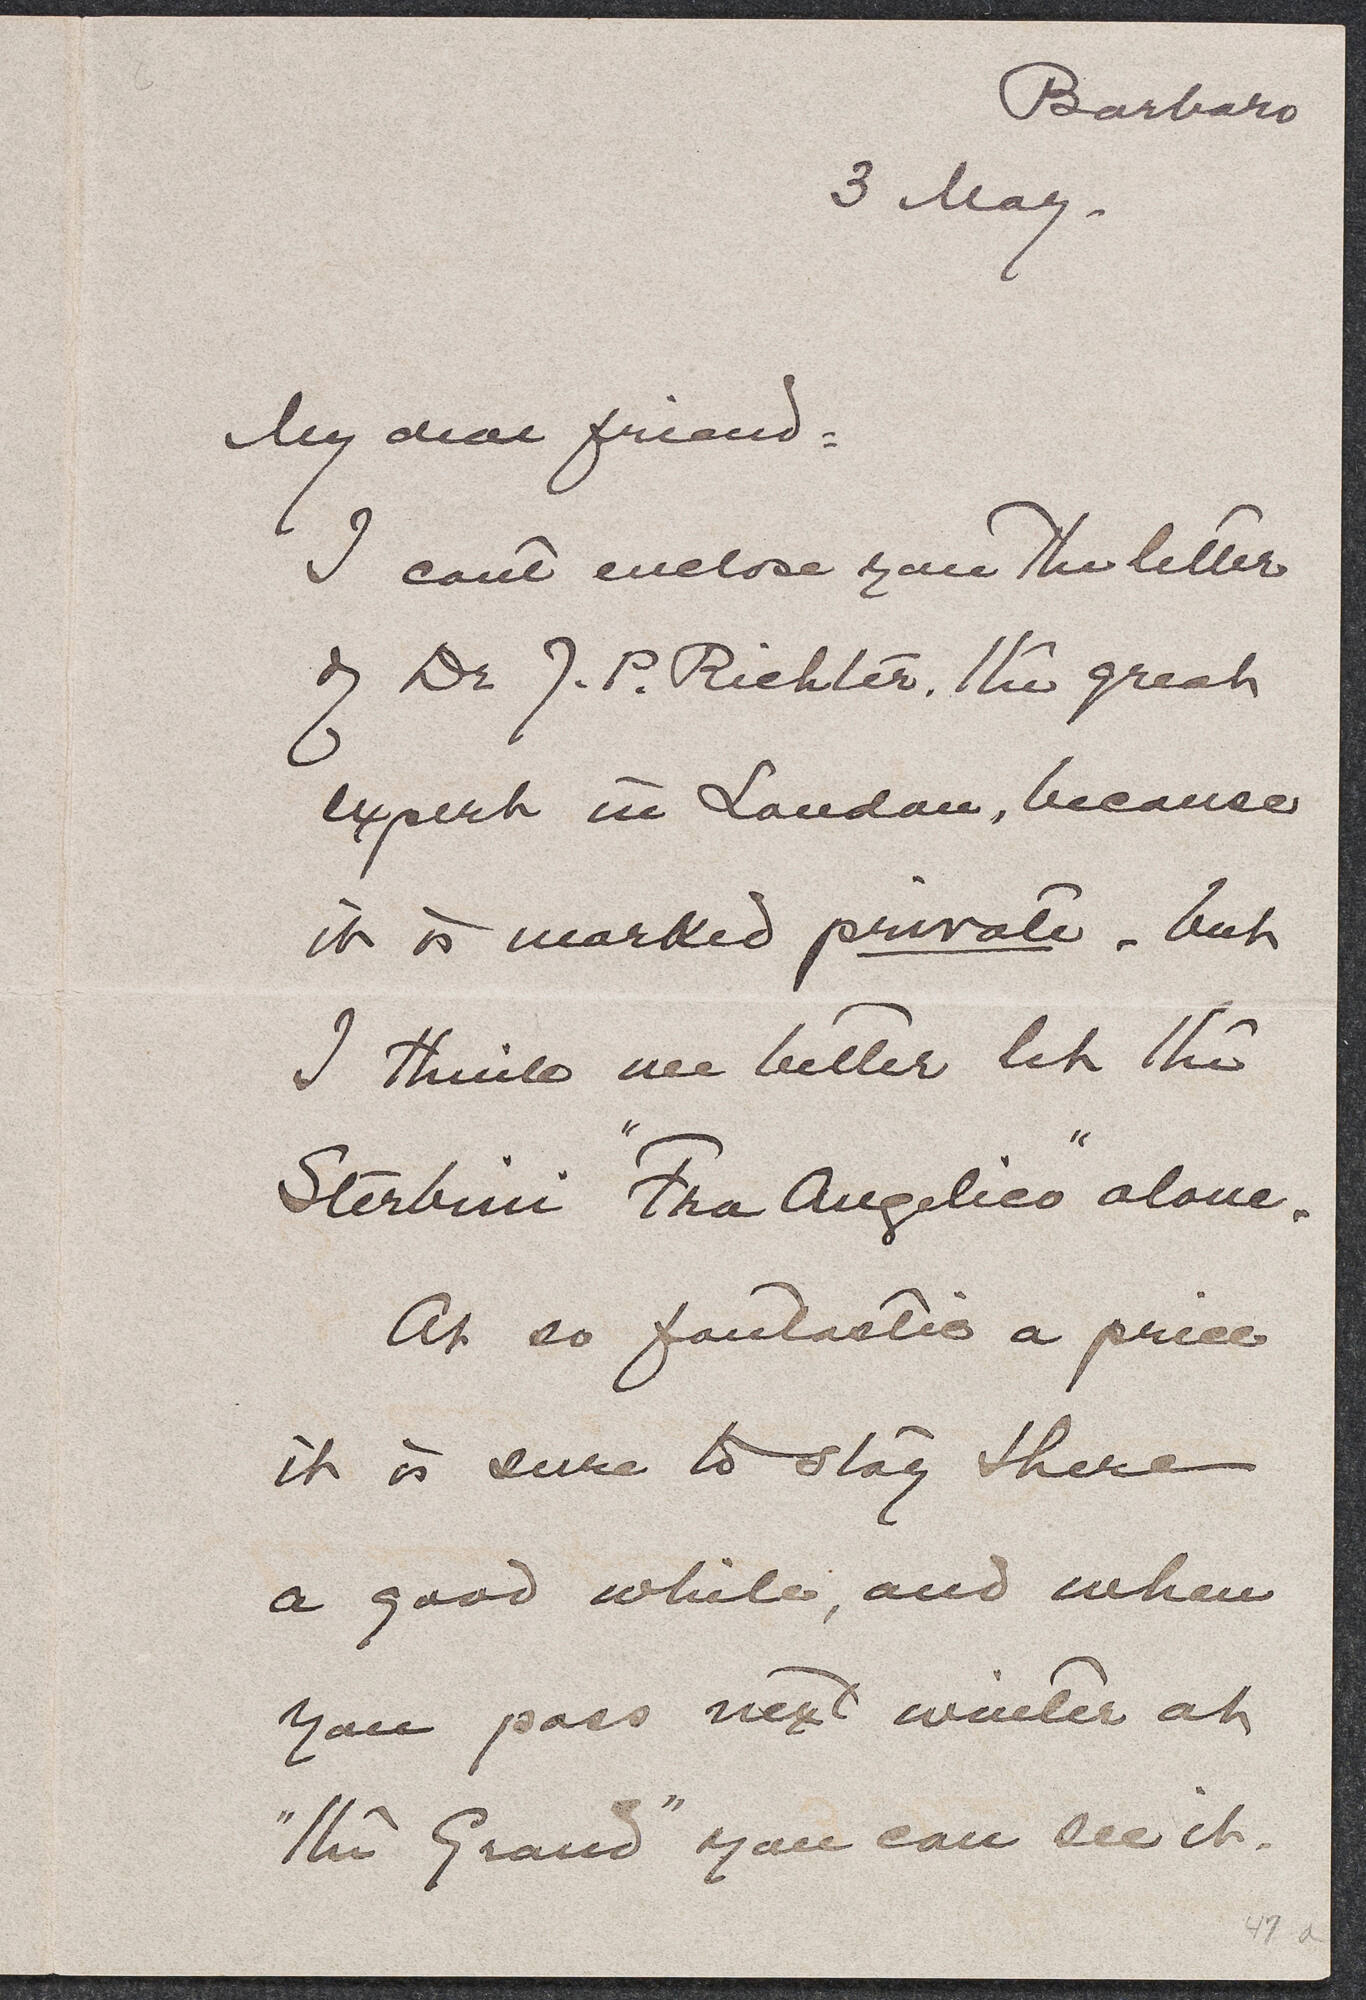 Barbaro
3 May.
My dear friend =
I can't enclose you the letter
of Dr J. P. Richter, the great
expert in London, because
it is marked private - but
I think we better let the
Sterbini "Fra Angelico" alone.
At so fantastic a price
it is sure to stay there
a good while, and when
you pass next winter at
"the Grand" you can see it.
47 a